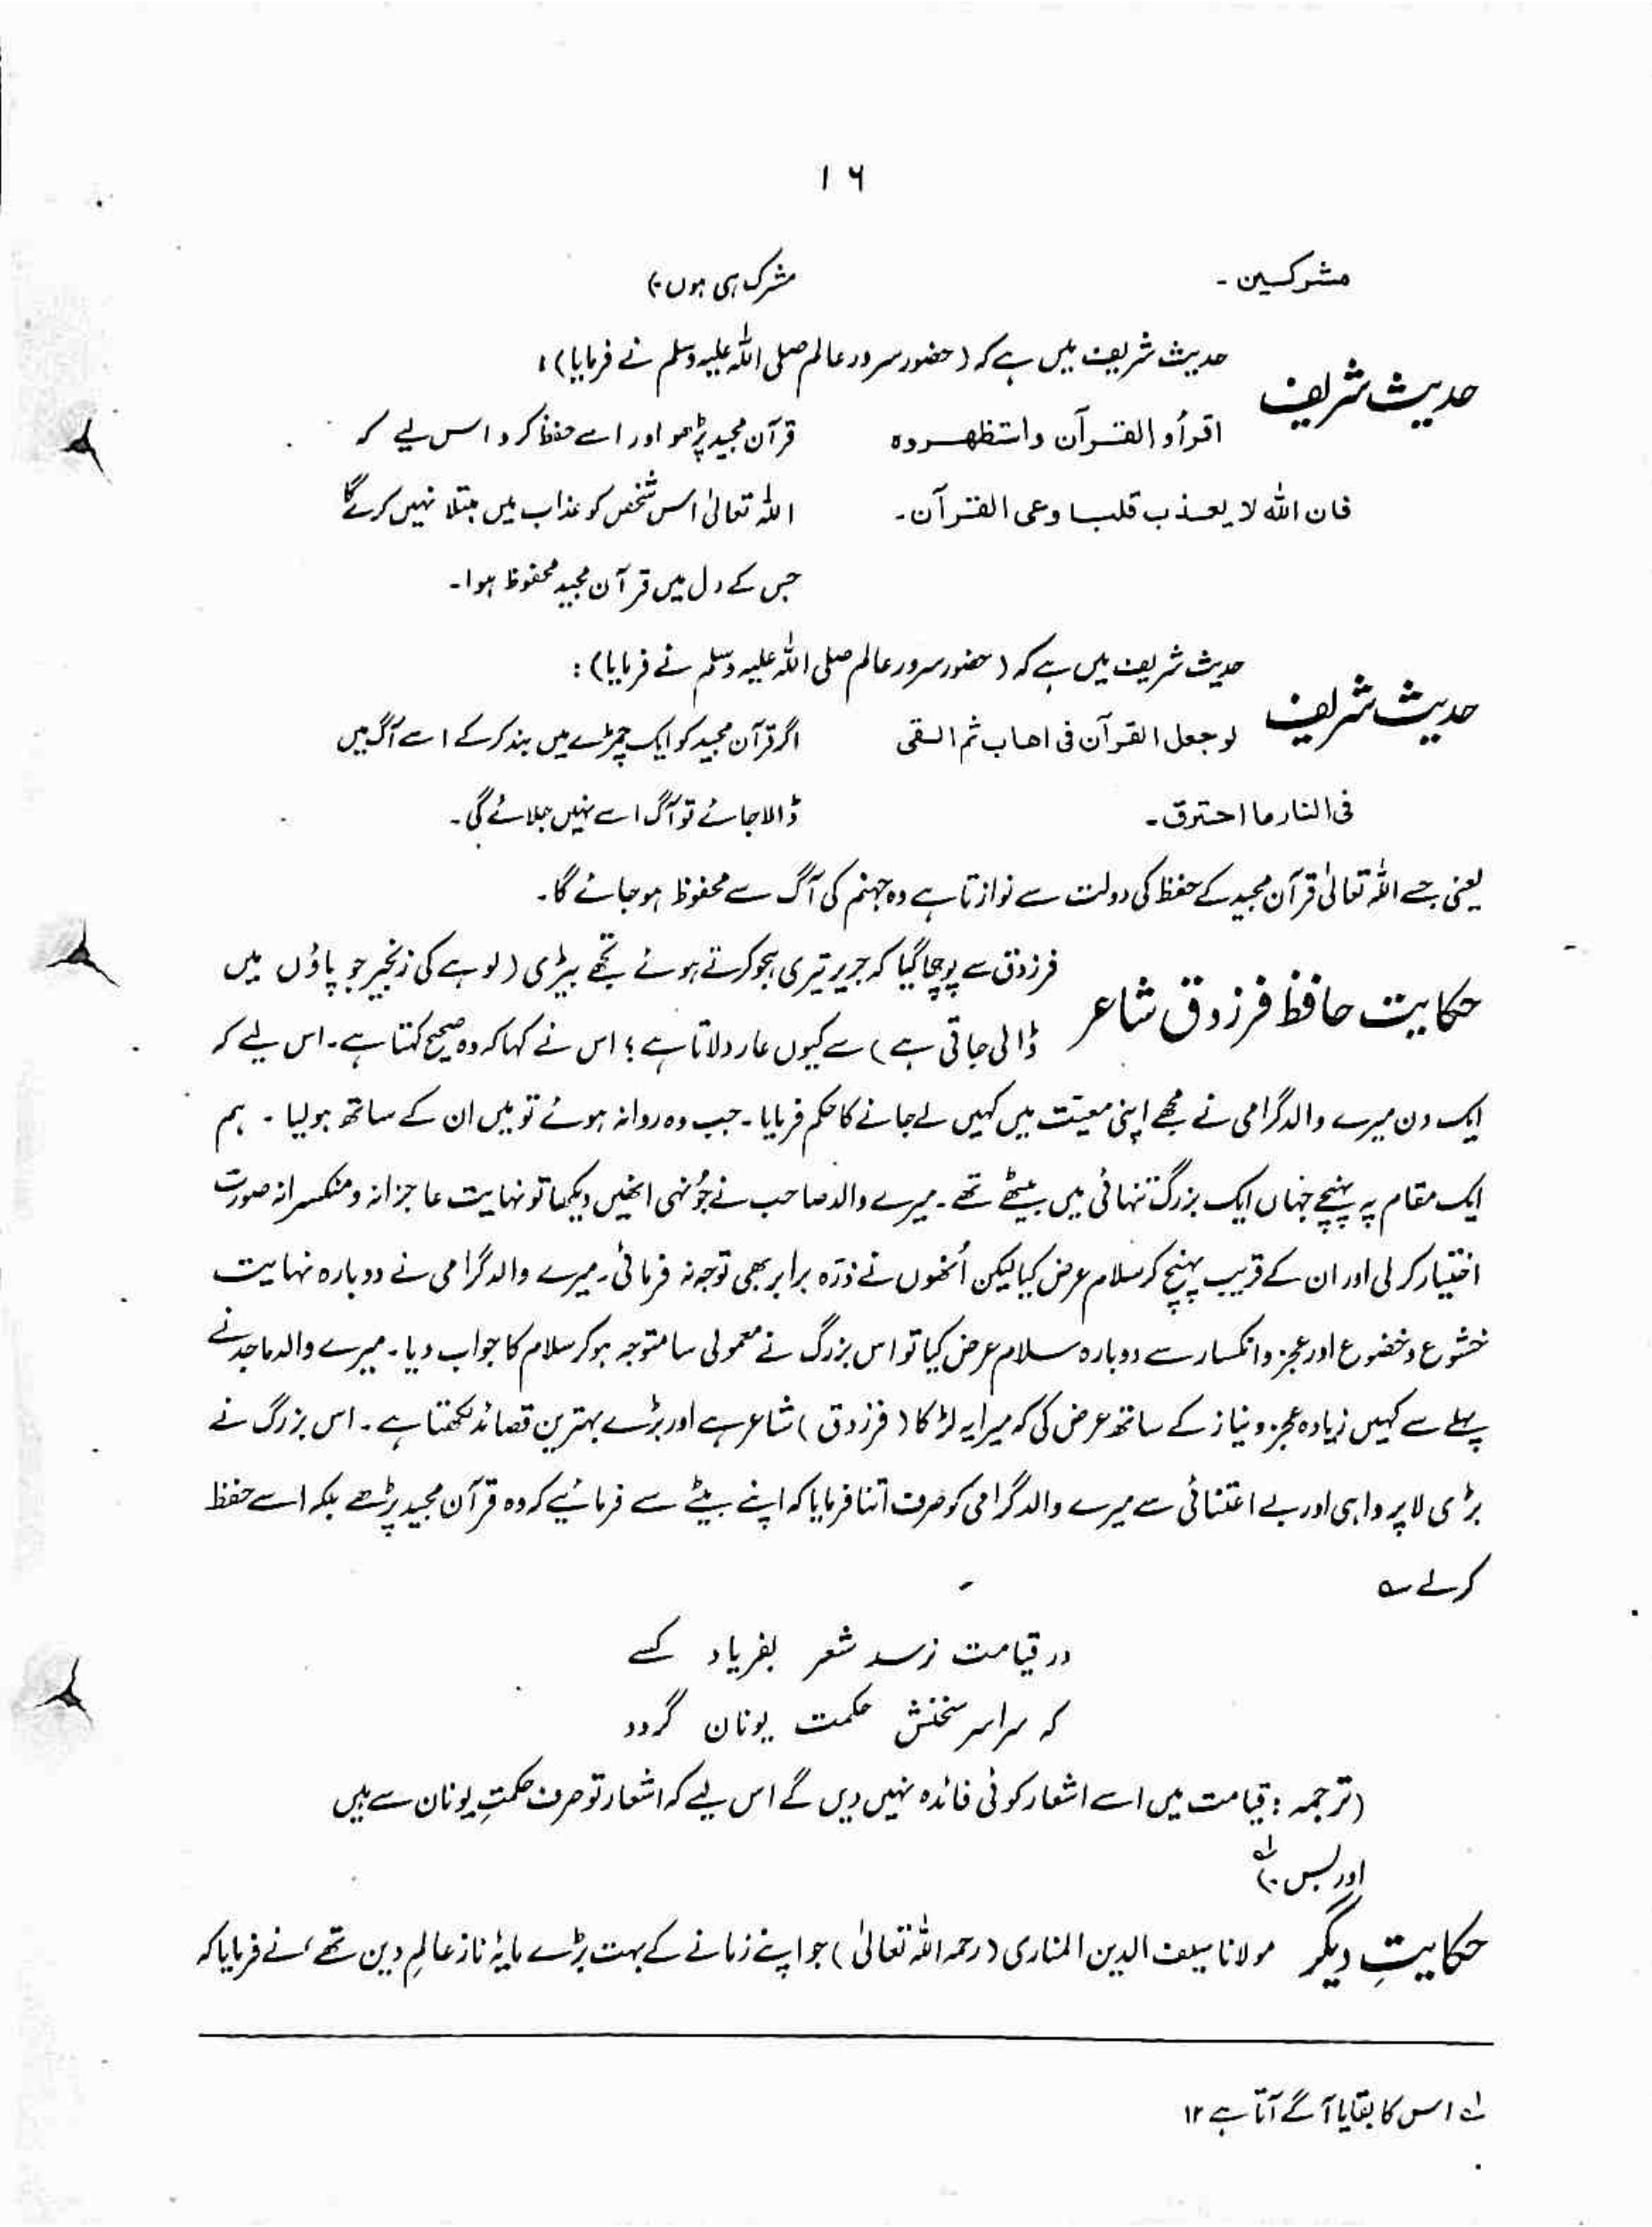 ۱۶
مشرکین۔
مشرک ہی ہوں۔)
حدیث شریف
حدیث شریف میں ہے کہ (حضور سرور عالم صلی اللہ علیہ وسلم نے فرمایا):
اقرأو القرآن واستظهروه
قرآن مجید پڑھو اور اسے حفظ کرو اس لیے کہ
فان الله لا يعذب قلبا وعى القرآن۔
اللہ تعالیٰ اس شخص کو عذاب میں مبتلا نہیں کرے گا
جس کے دل میں قرآن مجید محفوظ ہوا۔
حدیث شریف
حدیث شریف میں ہے کہ (حضور سرور عالم صلی اللہ علیہ وسلم نے فرمایا):
لو جعل القرآن فی اهاب ثم القی
اگر قرآن مجید کو ایک چمڑے میں بند کر کے اسے آگ میں
فی النار ما احترق۔
ڈالا جائے تو آگ اسے نہیں جلائے گی۔
یعنی جسے اللہ تعالیٰ قرآن مجید کے حفظ کی دولت سے نوازتا ہے وہ جہنم کی آگ سے محفوظ ہو جائے گا۔
حکایت حافظ فرزدق شاعر
فرزدق سے پوچھا گیا کہ جریر تیری ہجو کرتے ہوئے تجھے بیڑی (لوہے کی زنجیر جو پاؤں میں
ڈالی جاتی ہے) سے کیوں عار دلاتا ہے؛ اس نے کہا کہ وہ صحیح کہتا ہے۔ اس لیے کہ
ایک دن میرے والد گرامی نے مجھے اپنی معیّت میں کہیں لے جانے کا حکم فرمایا۔ جب وہ روانہ ہوئے تو میں ان کے ساتھ ہو لیا۔ ہم
ایک مقام پہ پہنچے جہاں ایک بزرگ تنہائی میں بیٹھے تھے۔ میرے والد صاحب نے جُونہی انھیں دیکھا تو نہایت عاجزانہ و منکسرانہ صورت
اختیار کر لی اور ان کے قریب پہنچ کر سلام عرض کیا لیکن اُنھوں نے ذرّہ برابر بھی توجہ نہ فرمائی۔ میرے والد گرامی نے دوبارہ نہایت
خشوع و خضوع اور عجز و انکسار سے دوبارہ سلام عرض کیا تو اس بزرگ نے معمولی سا متوجہ ہو کر سلام کا جواب دیا۔ میرے والد ماجد نے
پہلے سے کہیں زیادہ عجز و نیاز کے ساتھ عرض کی کہ میرا یہ لڑکا (فرزدق) شاعر ہے اور بڑے بہترین قصائد لکھتا ہے۔ اس بزرگ نے
بڑی لاپرواہی اور بے اعتنائی سے میرے والد گرامی کو صرف اتنا فرمایا کہ اپنے بیٹے سے فرمائیے کہ وہ قرآن مجید پڑھے بلکہ اسے حفظ
کرلے ؎
در قیامت نرسد شعر بفریاد کسے
کہ سراسر سخنش حکمت یونان گردد
(ترجمہ: قیامت میں اسے اشعار کوئی فائدہ نہیں دیں گے اس لیے کہ اشعار تو صرف حکمتِ یونان سے ہیں
اور بس۔)؂۱
حکایتِ دیگر مولانا سیف الدین المناری (رحمہ اللہ تعالیٰ) جو اپنے زمانے کے بہت بڑے مایۂ ناز عالمِ دین تھے، نے فرمایا کہ
؂۱ اس کا بقایا آگے آتا ہے ۱۲